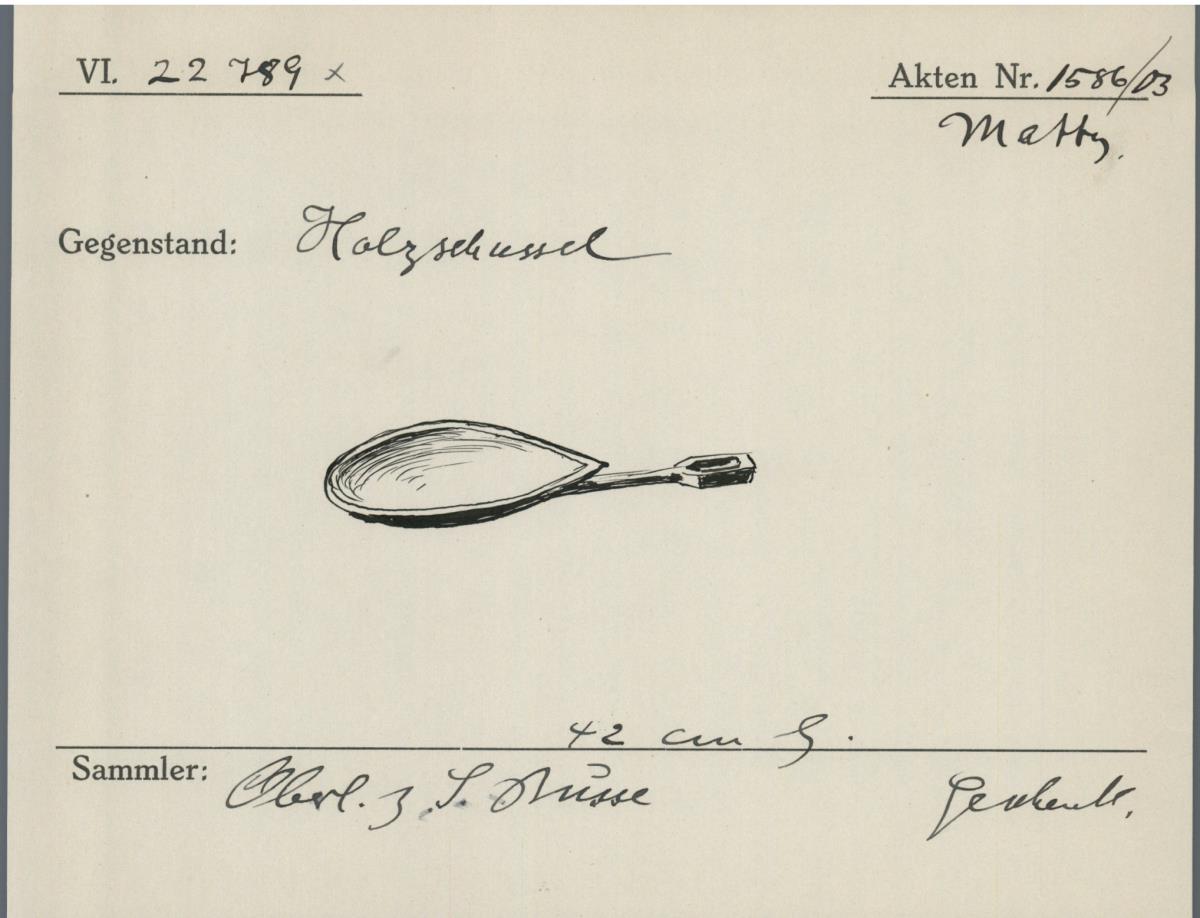 VI. 22 789 x
Akten Nr. 1586/03
Matty.
Gegenstand: Holzschussel
42 cm
Sammler: Oberl. z. S. Geschenk.